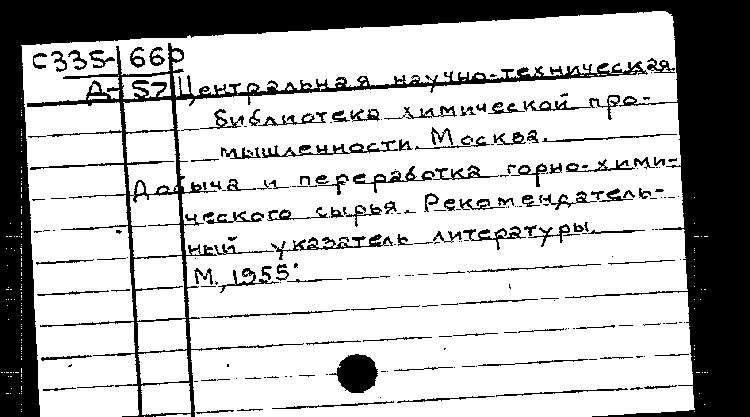 С335- 66р
Д- 57 Центральная научно-техническая
библиотека химической про-
мышленности. Москва.
Добыча и переработка горно-хими-
ческого сырья. Рекомендатель-
ный указатель литературы.
М., 1955.